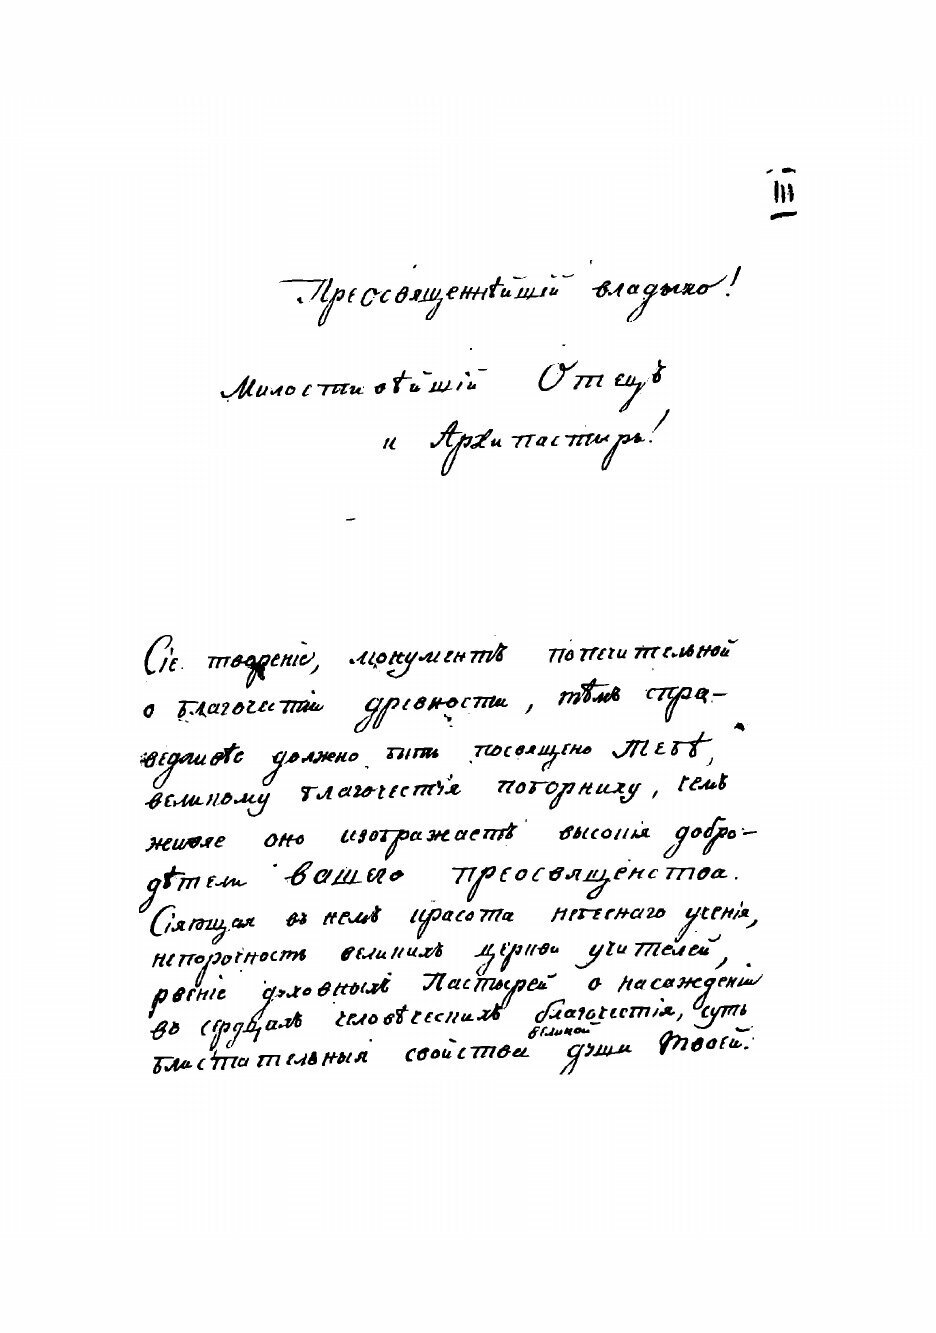 III
Преосвященнѣйшій владыко!
Милостивѣйшій Отецъ
и Архипастырь!
Сіе творенiе, монументъ попечительной
о благочестіи древности, тѣмъ спра-
ведливѣе должно быть посвящено ТЕБѢ,
великому благочестія поборнику, чемъ
живяе оно изображаетъ высокія добро-
дѣтели вашего преосвященства.
Сіяющая въ немъ красота небеснаго ученія,
непорочность великихъ церкви учителей,
рвеніе духовныхъ Пастырей о насажденіи
въ сердцахъ человѣческихъ благочестія, суть
блистательныя свойства великой души Твоей.